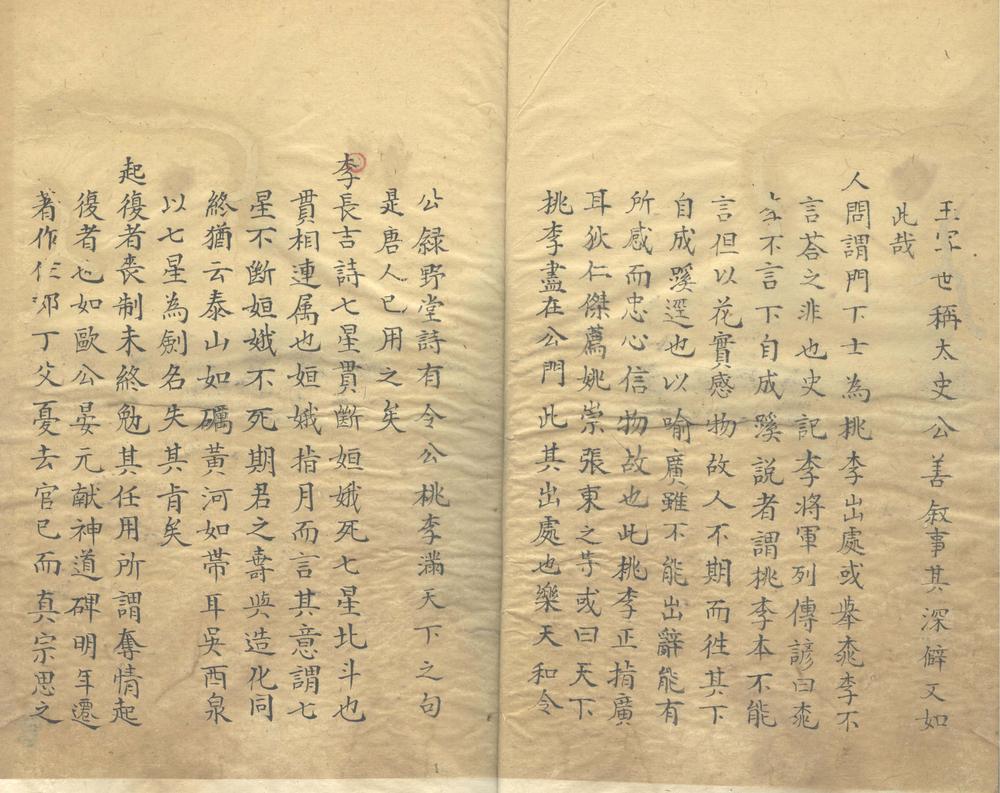 玉字世稱太史公善叙事其深僻又如
此哉
人問謂門下士為桃李出處或舉桃李不
言荅之非也史記李將軍列傳諺曰桃
李不言下自成蹊説者謂桃李本不能
言但以花實感物故人不期而徃其下
自成蹊逕也以喻廣雖不能出辭能有
所感而忠心信物故也此桃李正指廣
耳狄仁傑薦姚崇張東之等或曰天下
桃李盡在公門此其出處也樂天和令
公録野堂詩有令公桃李滿天下之句
是唐人已用之矣
李長吉詩七星貫斷姮娥死七星北斗也
貫相連属也姮娥指月而言其意謂七
星不斷姮娥不死期君之壽與造化同
終猶云泰山如礪黃河如帶耳吳西泉
以七星為劍名失其肯矣
起復者喪制未終勉其任用所謂奪情起
復者也如歐公晏元献神道碑明年遷
著作佐郎丁父憂去官已而真宗思之